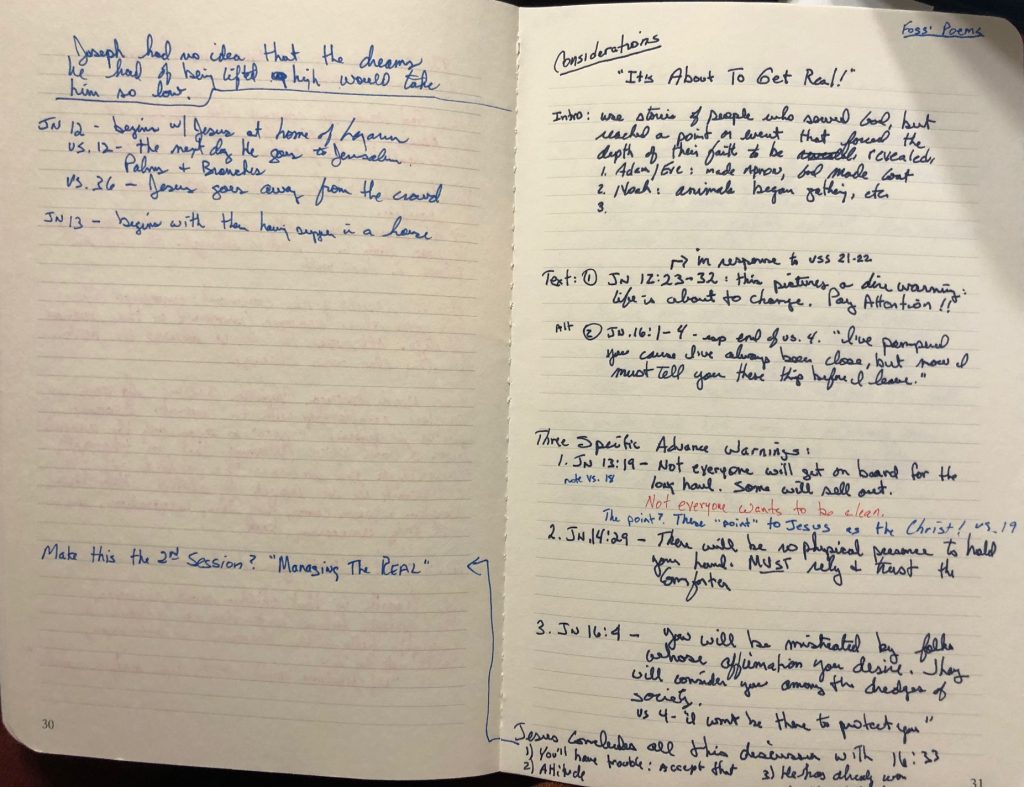 Joseph had no idea that the dreams
he had of being lifted high would take
him so low.
JN 12 - begins w/ Jesus at home of Lazarus
vs. 12 - the next day He goes to Jerusalem.
Palms + Branches
vs. 36 - Jesus goes away from the crowd
JN 13 - begins with them having supper in a house
Make this the 2nd Session? "Managing The REAL"
30
Foss' Poems
Considerations
"Its About To Get Real!"
Intro: use stories of people who served God, but
reached a point or event that forced the
depth of their faith to be revealed.
1. Adam/Eve: made apron, God made Coat
2. Noah: animals began gathing, etc.
3.
→ in response to vss 21-22
Text: ① JN 12:23-32: this pictures a dire warning:
life is about to change. Pay Attention!!
Alt ② JN.16:1-4 - esp end of vs. 4. "I've pampered
you cause I've always been close, but now I
must tell you these things before I leave."
Three Specific Advance Warnings:
1. JN 13:19 - Not everyone will get on board for the
note vs. 18 long haul. Some will sell out.
Not everyone wants to be clean.
The point? These "point" to Jesus as the Christ! vs. 19
2. JN.14:29 - There will be no physical presence to hold
your hand. MUST rely & trust the
Comforter
3. JN 16:4 - you will be mistreated by folks
whose affirmation you desire. They
will consider you among the dredges of
society.
vs 4 - I won't be there to protect you"
Jesus concludes all this discussion with 16:33
1) You'll have trouble: accept that 3) He has already won
2) Attitude
31